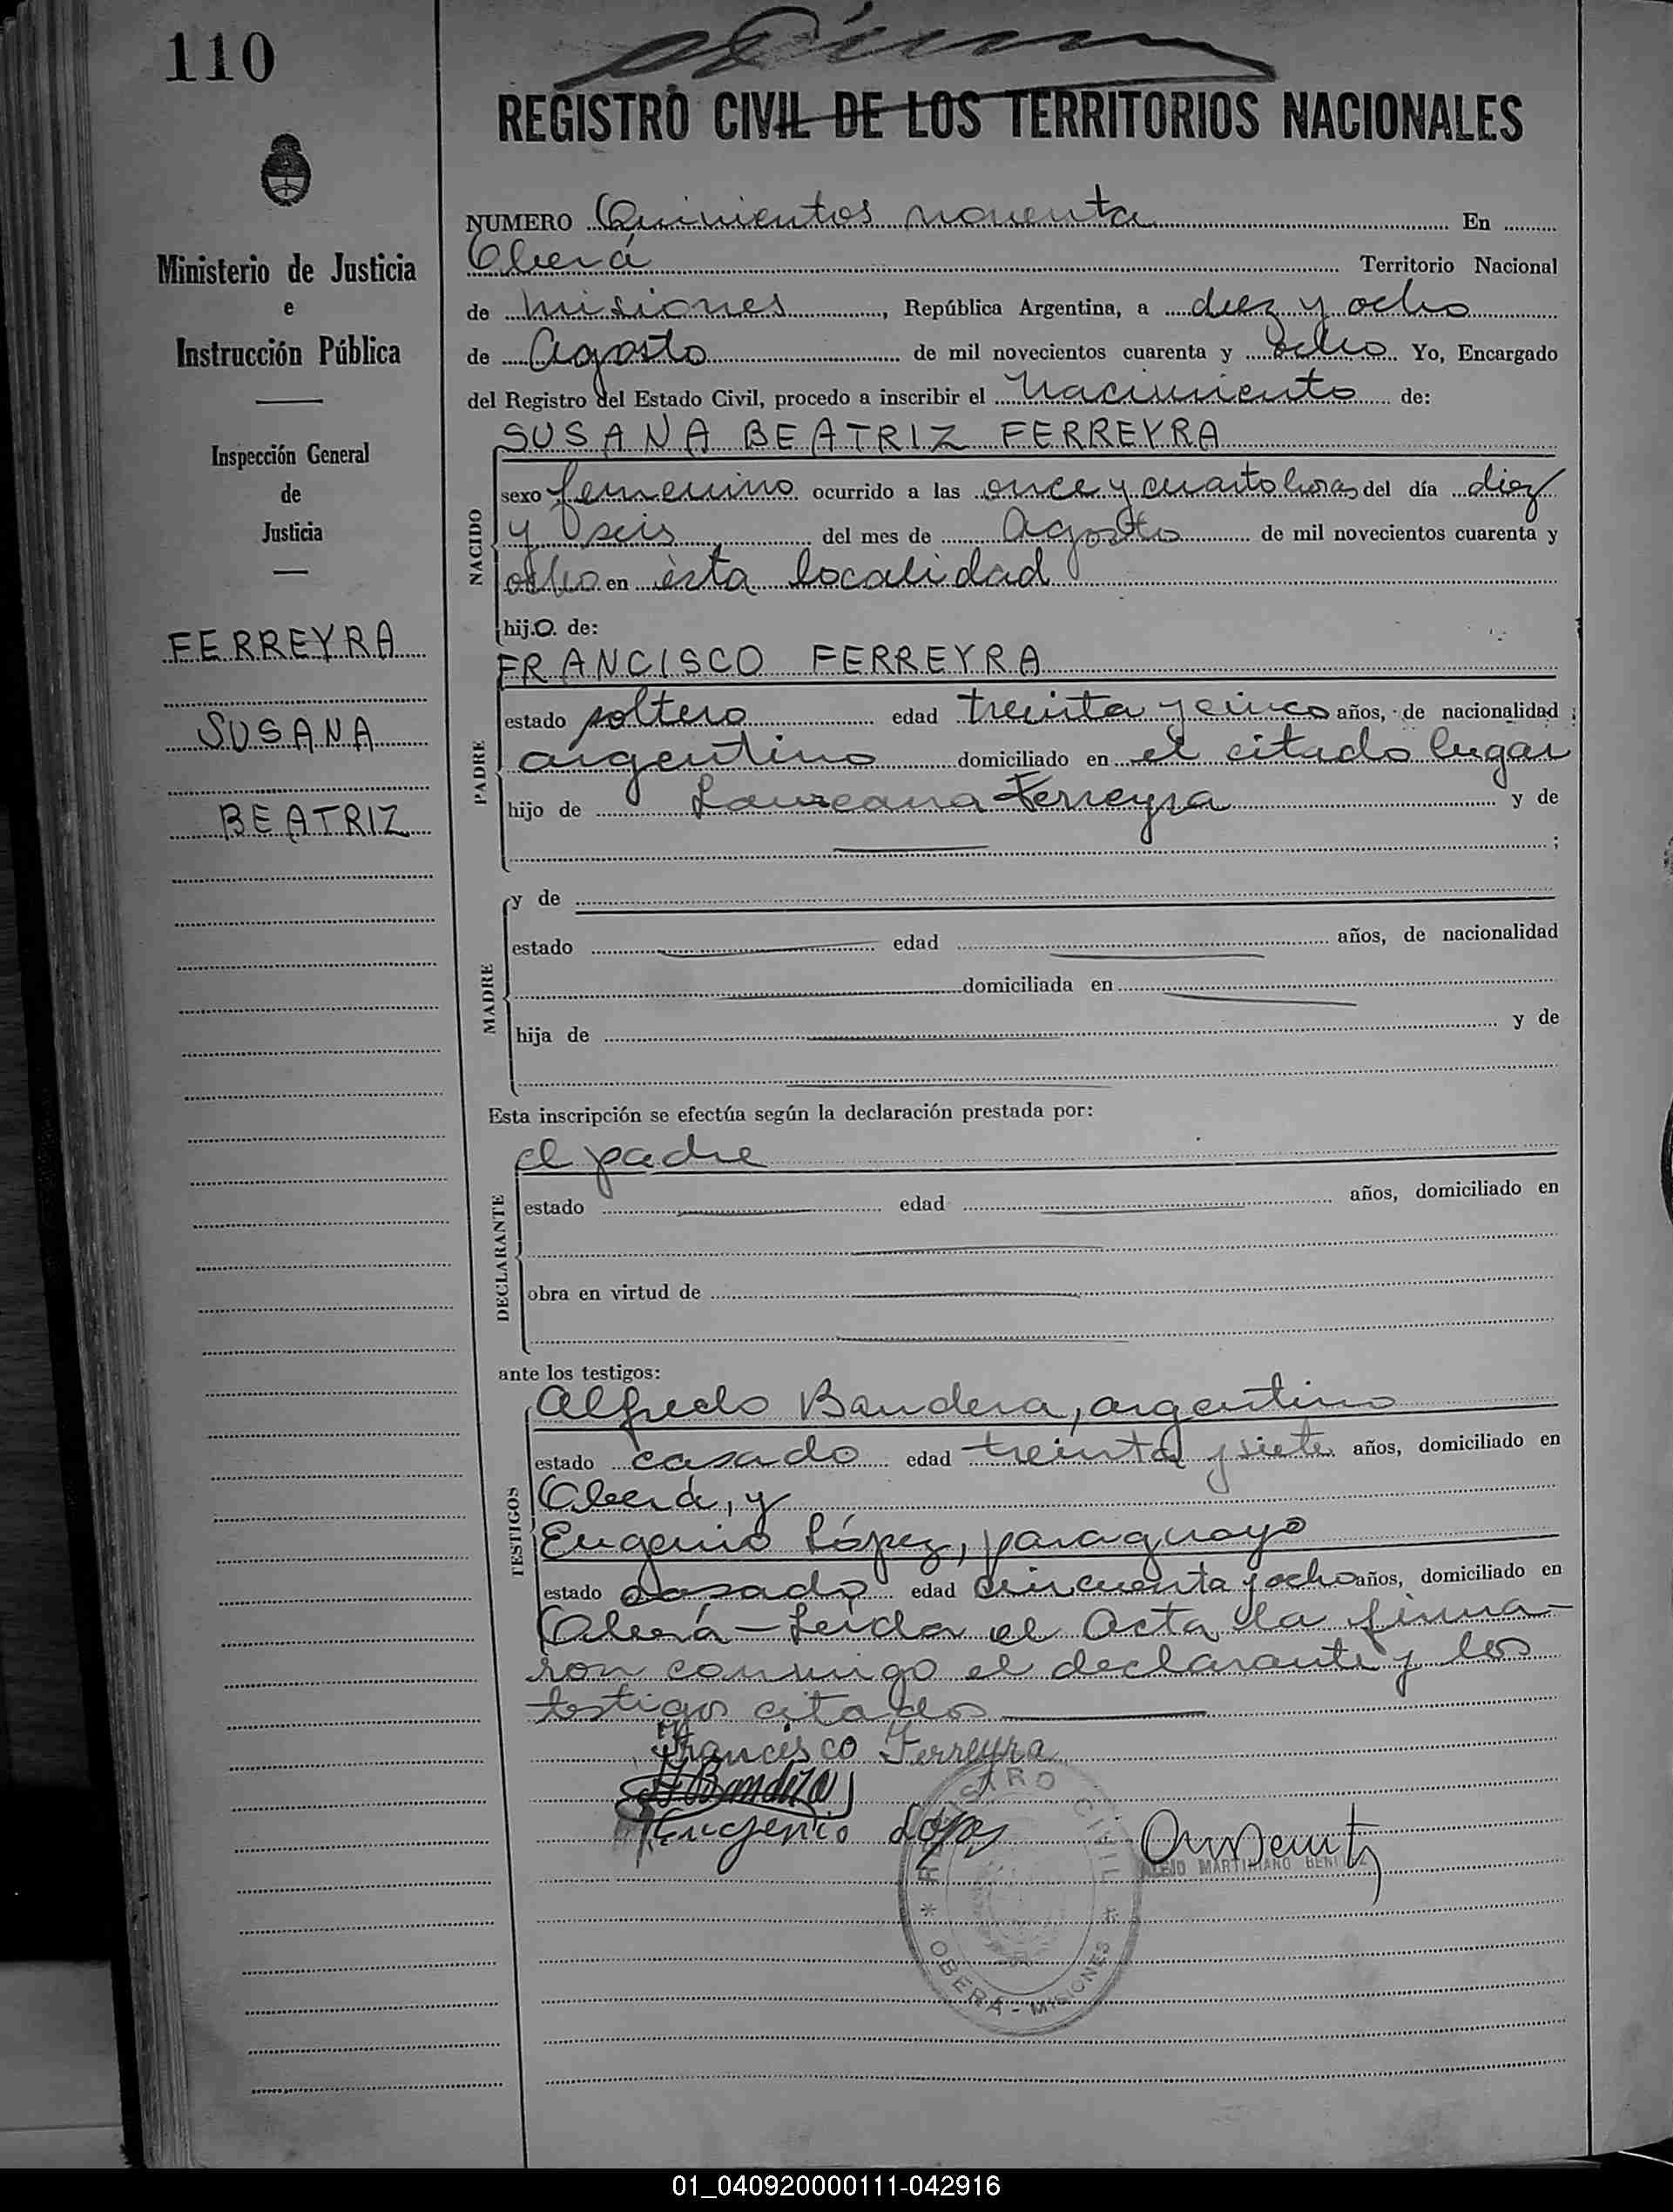 110
REGISTRO CIVIL DE LOS TERRITORIOS NACIONALES
Ministerio de Justicia
e
Instrucción Pública
Inspección General
de
Justicia
FERREYRA
SUSANA
BEATRIZ
NUMERO Quinientos noventa En
Oberá Territorio Nacional
de Misiones, República Argentina, a diez y ocho
de Agosto de mil novecientos cuarenta y ocho Yo, Encargado
del Registro del Estado Civil, procedo a inscribir el Nacimiento de:
SUSANA BEATRIZ FERREYRA
NACIDO
sexo femenino ocurrido a las once y cuarto horas del día diez
y seis del mes de Agosto de mil novecientos cuarenta y
ocho en ésta localidad
hij.O. de:
FRANCISCO FERREYRA
PADRE
estado soltero edad treinta y cinco años, de nacionalidad
argentino domiciliado en el citado lugar
hijo de Laureana Ferreyra y de
;
MADRE
y de
estado edad años, de nacionalidad
domiciliada en
hija de y de
Esta inscripción se efectúa según la declaración prestada por:
el padre
DECLARANTE
estado edad años, domiciliado en
obra en virtud de
ante los testigos:
TESTIGOS
Alfredo Bandera, argentino
estado casado edad treinta y siete años, domiciliado en
Oberá, y
Eugenio López, paraguayo
estado casado edad cincuenta y ocho años, domiciliado en
Oberá - Leída el Acta la firma-
ron conmigo el declarante y los
testigos citados
Francisco Ferreyra
A Bandera
Eugenio López
REGISTRO CIVIL
* OBERÁ - MISIONES *
ALEJO MARTINIANO BENITEZ
01_040920000111-042916